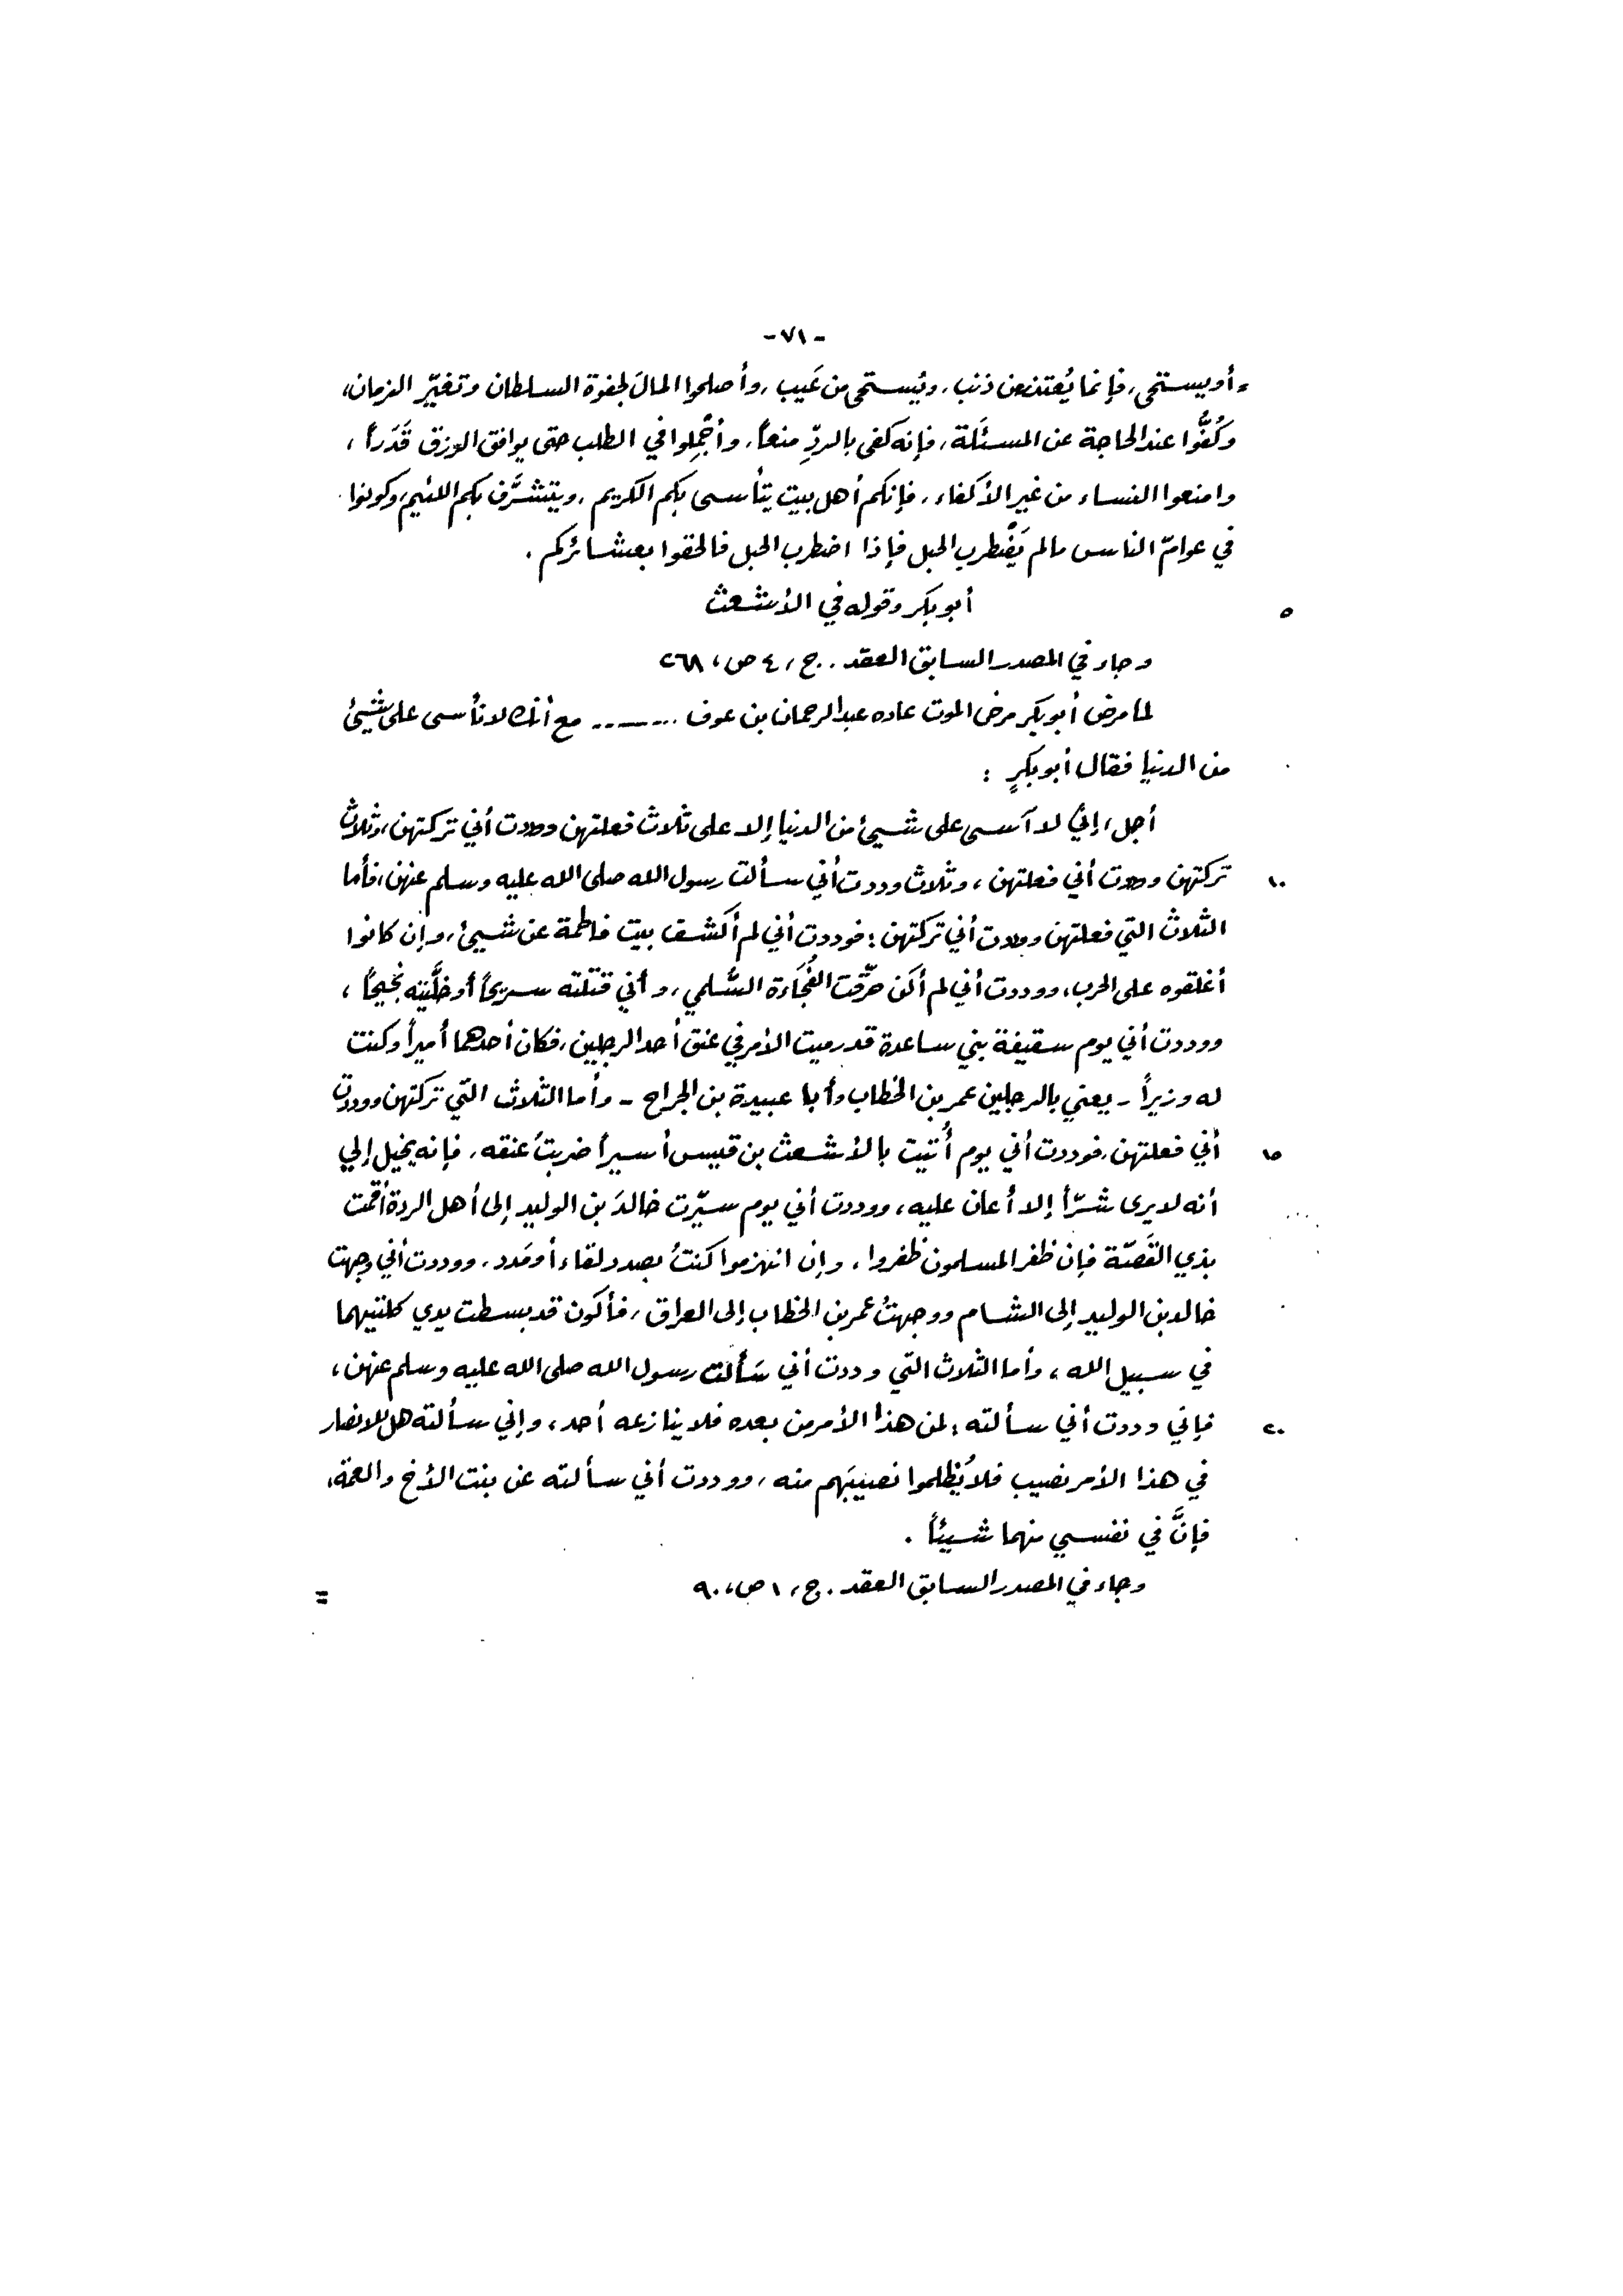 -٧١-
= أو يستحى، فإنما يُعتذر من ذنب، ويُستحى من عَيب، وأصلحوا المالَ لجفوة السلطان وتغيّر الزمان،
وكُفُّوا عند الحاجة عن المسئَلة، فإنه كفى بالردِّ منعاً، وأجْمِلوا في الطلب حتى يوافق الرزق قَدَراً،
وامنعوا النساء من غير الأكفاء، فإنكم أهل بيت يتأسى بكم الكريم، ويتشرَّف بكم اللئيم، وكونوا
في عوامّ الناس مالم يَضْطرب الحبل فإذا اضطرب الحبل فالحقوا بعشائركم.
٥ أبو بكر وقوله في الأشعث
وجاء في المصدر السابق العقد.. ج، ٤ ص، ٢٦٨
لما مرض أبو بكر مرض الموت عاده عبد الرحمان بن عوف ....... مع أنك لا تأسى على شيئ
من الدنيا فقال أبو بكرٍ :
أجل، إنّي لا آسى على شيئ من الدنيا إلا على ثلاث فعلتهن وددت أني تركتهن، وثلاث
١٠ تركتهن وددت أني فعلتهن، وثلاث وددت أني سألت رسول الله صلى الله عليه وسلم عنهن، فأما
الثلاث التي فعلتهن وددت أني تركتهن : فوددت أني لم أكشف بيت فاطمة عن شيئ، وإن كانوا
أغلقوه على الحرب، ووددت أني لم أكن حرّقت الفُجَاءة السُّلمي، وأني قتلته سريحاً أو خلَّيته نجيحاً،
ووددت أني يوم سقيفة بني ساعدة قد رميت الأمر في عنق أحد الرجلين، فكان أحدهما أميراً وكنت
له وزيراً - يعني بالرجلين عمر بن الخطاب وأبا عبيدة بن الجراح - وأما الثلاث التي تركتهن ووددت
١٥ أني فعلتهن، فوددت أني يوم أُتيت بالأشعث بن قيس أسيراً ضربتُ عنقه، فإنه يخيل إلي
أنه لا يرى شرّاً إلا أعان عليه، ووددت أني يوم سيّرت خالدَ بن الوليد إلى أهل الردة أقمت
بذي القَصّة فإن ظفر المسلمون ظفروا، وإن انهزموا كنتُ بصدد لقاء أو مَدد، ووددت أني وجهت
خالد بن الوليد إلى الشام ووجهتُ عمر بن الخطاب إلى العراق، فأكون قد بسطت يدي كلتيهما
في سبيل الله، وأما الثلاث التي وددت أني سَألت رسول الله صلى الله عليه وسلم عنهن،
٢٠ فإني وددت أني سألته : لمن هذا الأمر من بعده فلا ينازعه أحد، وإني سألته هل للأنصار
في هذا الأمر نصيب فلا يُظلموا نصيبَهم منه، ووددت أني سألته عن بنت الأخ والعمة،
فإنَّ في نفسي منهما شيئاً.
وجاء في المصدر السابق العقد. ج، ١ ص، ٩٠
=